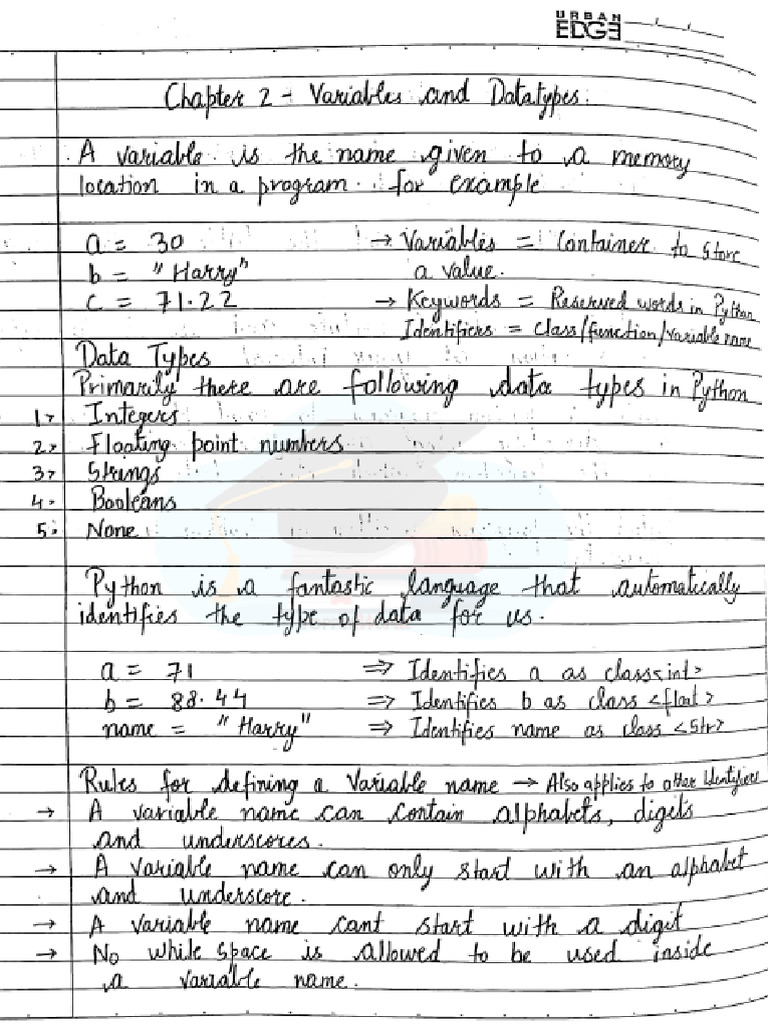 URBAN
EDGE
Chapter 2 - Variables and Datatypes.
A variable is the name given to a memory
location in a program. for example
a = 30 → Variables = Container to store
b = "Harry" a value.
c = 71.22 → Keywords = Reserved words in Python
Identifiers = class/function/variable name
Data Types
Primarily there are following data types in Python
1> Integers
2> Floating point numbers
3> Strings
4. Booleans
5. None
Python is a fantastic language that automatically
identifies the type of data for us.
a = 71 ⇒ Identifies a as class<int>
b = 88.44 ⇒ Identifies b as class <float>
name = "Harry" ⇒ Identifies name as class <str>
Rules for defining a Variable name → Also applies to other Identifiers
→ A variable name can contain alphabets, digits
and underscores.
→ A variable name can only start with an alphabet
and underscore.
→ A variable name cant start with a digit
→ No while space is allowed to be used inside
a variable name.